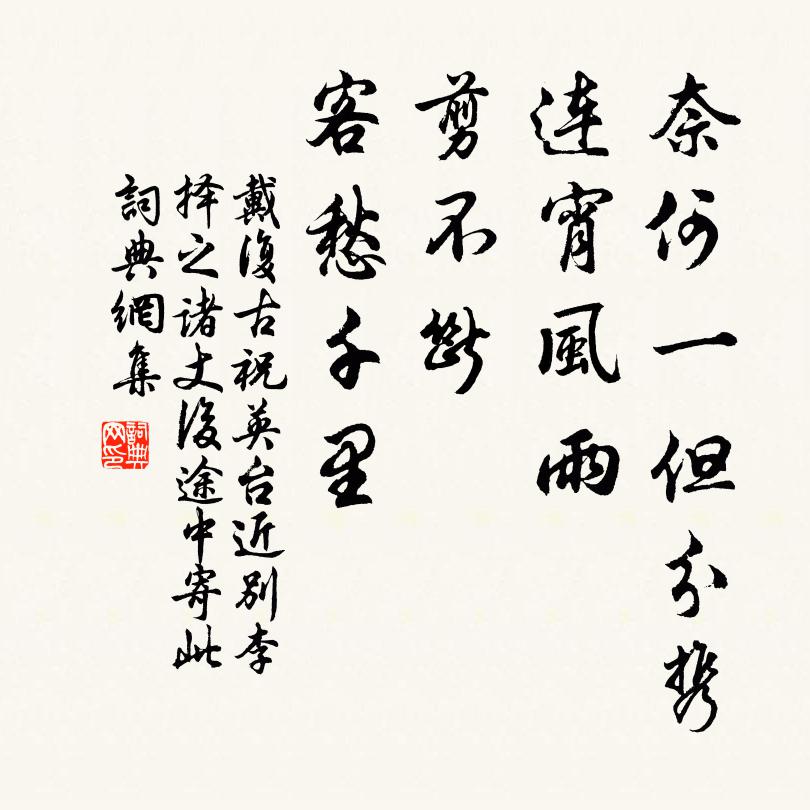 奈何一但分攜
連宵風雨
剪不斷
客愁千里
戴復古祝英台近別李
擇之諸丈後途中寄此
詞典網集
詞典网印